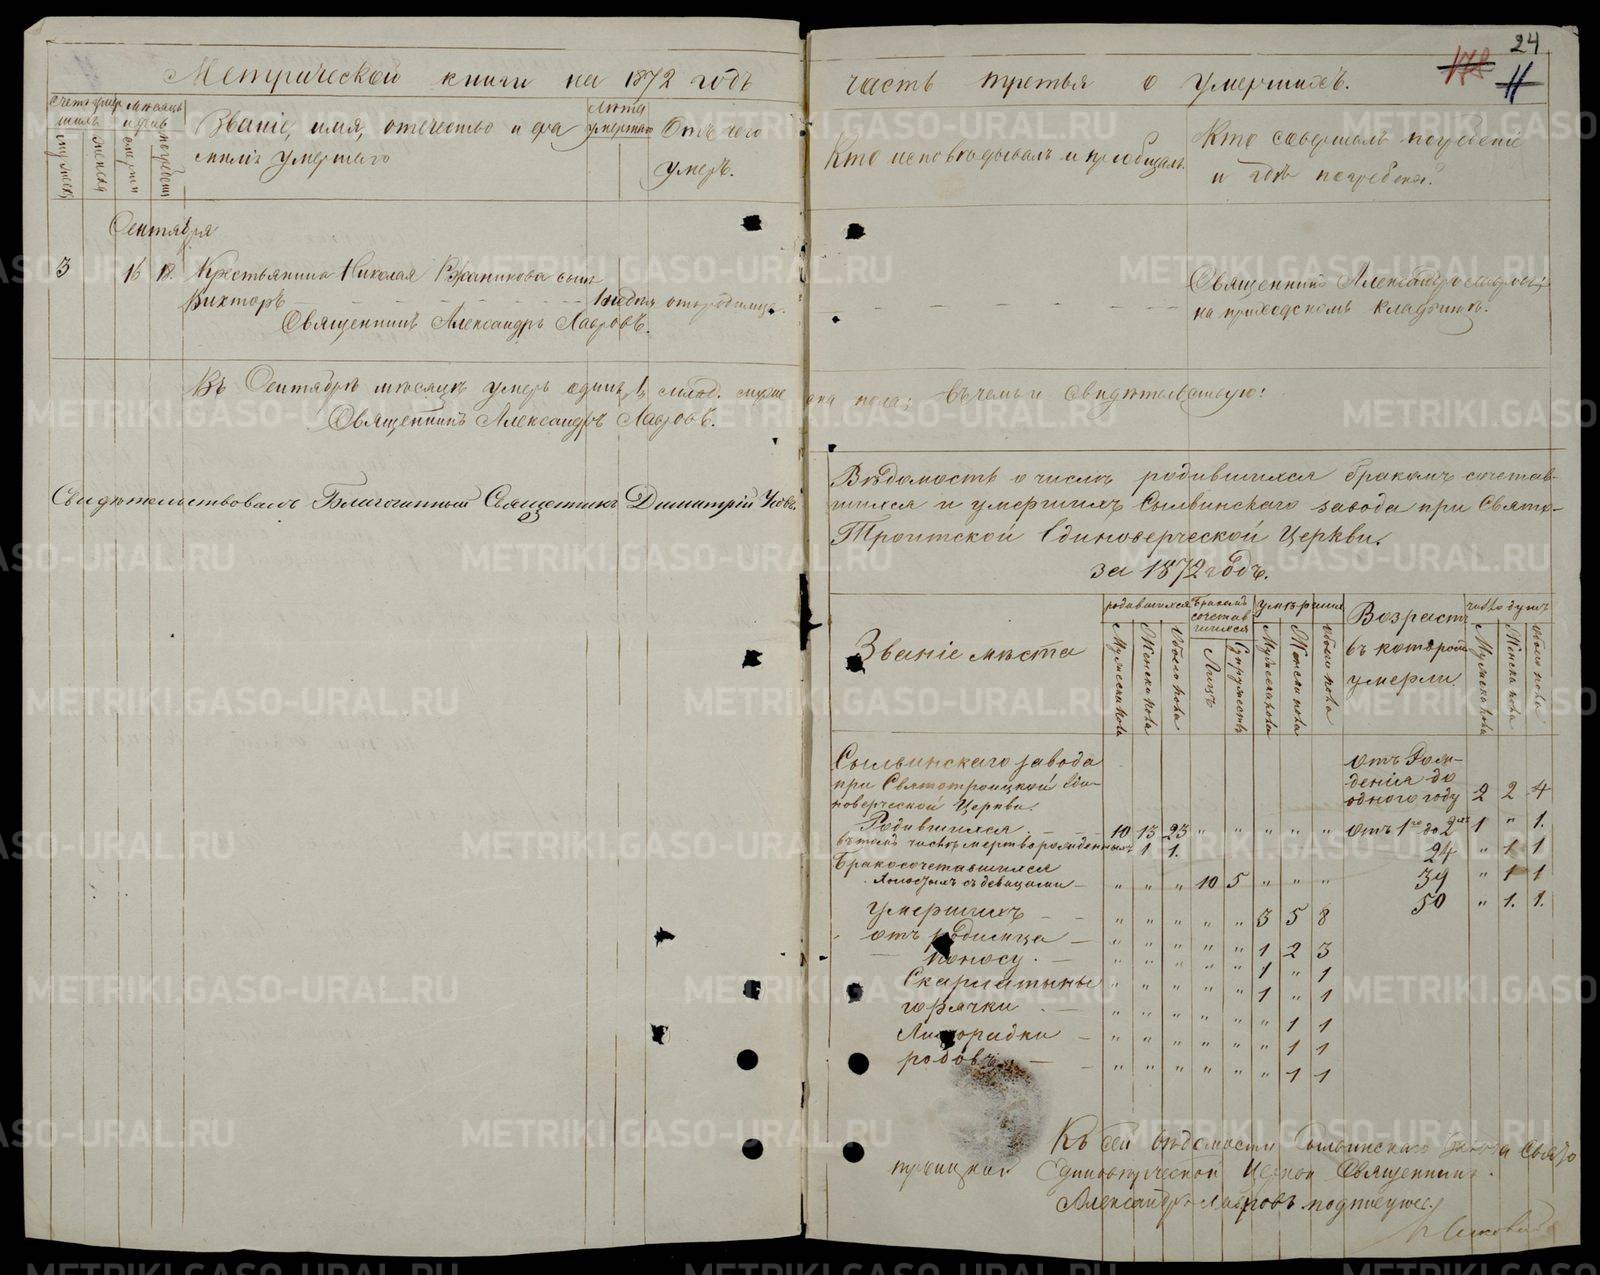 24
178
11
Метрической книги на 1872 годъ
часть третья о умершихъ.
Счетъ умершихъ
мужеска
женска
Мѣсяцъ и день
смерти
погребенія
Званіе, имя, отечество и фамилія умершаго
Лѣта умершаго
Отъ чего умеръ.
Кто исповѣдывалъ и пріобщалъ.
Кто совершалъ погребеніе и гдѣ погребенъ?
Сентября
3 16 18. Крестьянина Николая сынъ
Викторъ 1 недѣля отъ родимца.
Священникъ Александръ Лавровъ.
Священникъ Александръ Лавровъ
на приходскомъ кладбищѣ.
Въ Сентябрѣ мѣсяцѣ умеръ одинъ, 1, младъ. мужеска пола; въ чемъ и свидѣтельствую:
Священникъ Александръ Лавровъ.
Свидѣтельствовалъ Благочинный Священникъ Димитрій
Вѣдомость о числѣ родившихся бракомъ сочетав-
шихся и умершихъ Сылвинскаго завода при Свято-
Троитской Единоверческой Церкви.
за 1872 годъ.
Званіе мѣста
родившихся
Мужеска пола
Женска пола
Обоего пола
Бракомъ сочетавшихся
Лицъ
Супружествъ
умерших
Мужеска пола
Женска пола
Обоего пола
Возрастъ въ которой умерли
число душъ
Мужеска пола
Женска пола
Обоего пола
Сылвинскаго завода
при Святотроицкой Еди-
новерческой Церкви.
отъ Рож-
денія до
одного году 2 2 4
Родившихся 10 13 23 " " " " " отъ 1го до 2хъ 1 " 1.
въ томъ числѣ мертворожденныхъ 1 1. 24 " 1 1
Бракосочетавшихся
Холостыхъ съ девицами " " " 10 5 " " " 39 " 1 1
50 " 1. 1.
умершихъ " " " " " 3 5 8
отъ родимца " " " " " 1 2 3
поносу " " " " " 1 " 1
Скарлатины " " " " " 1 " 1
горячки " " " " " " 1 1
Лихорадки " " " " " " 1 1
родовъ " " " " " " 1 1
Къ сей вѣдомости Сылвинскаго завода Свято
троицкой Единовѣрческой Церкви Священникъ
Александръ Лавровъ подписуюсь.
METRIKI.GASO-URAL.RU